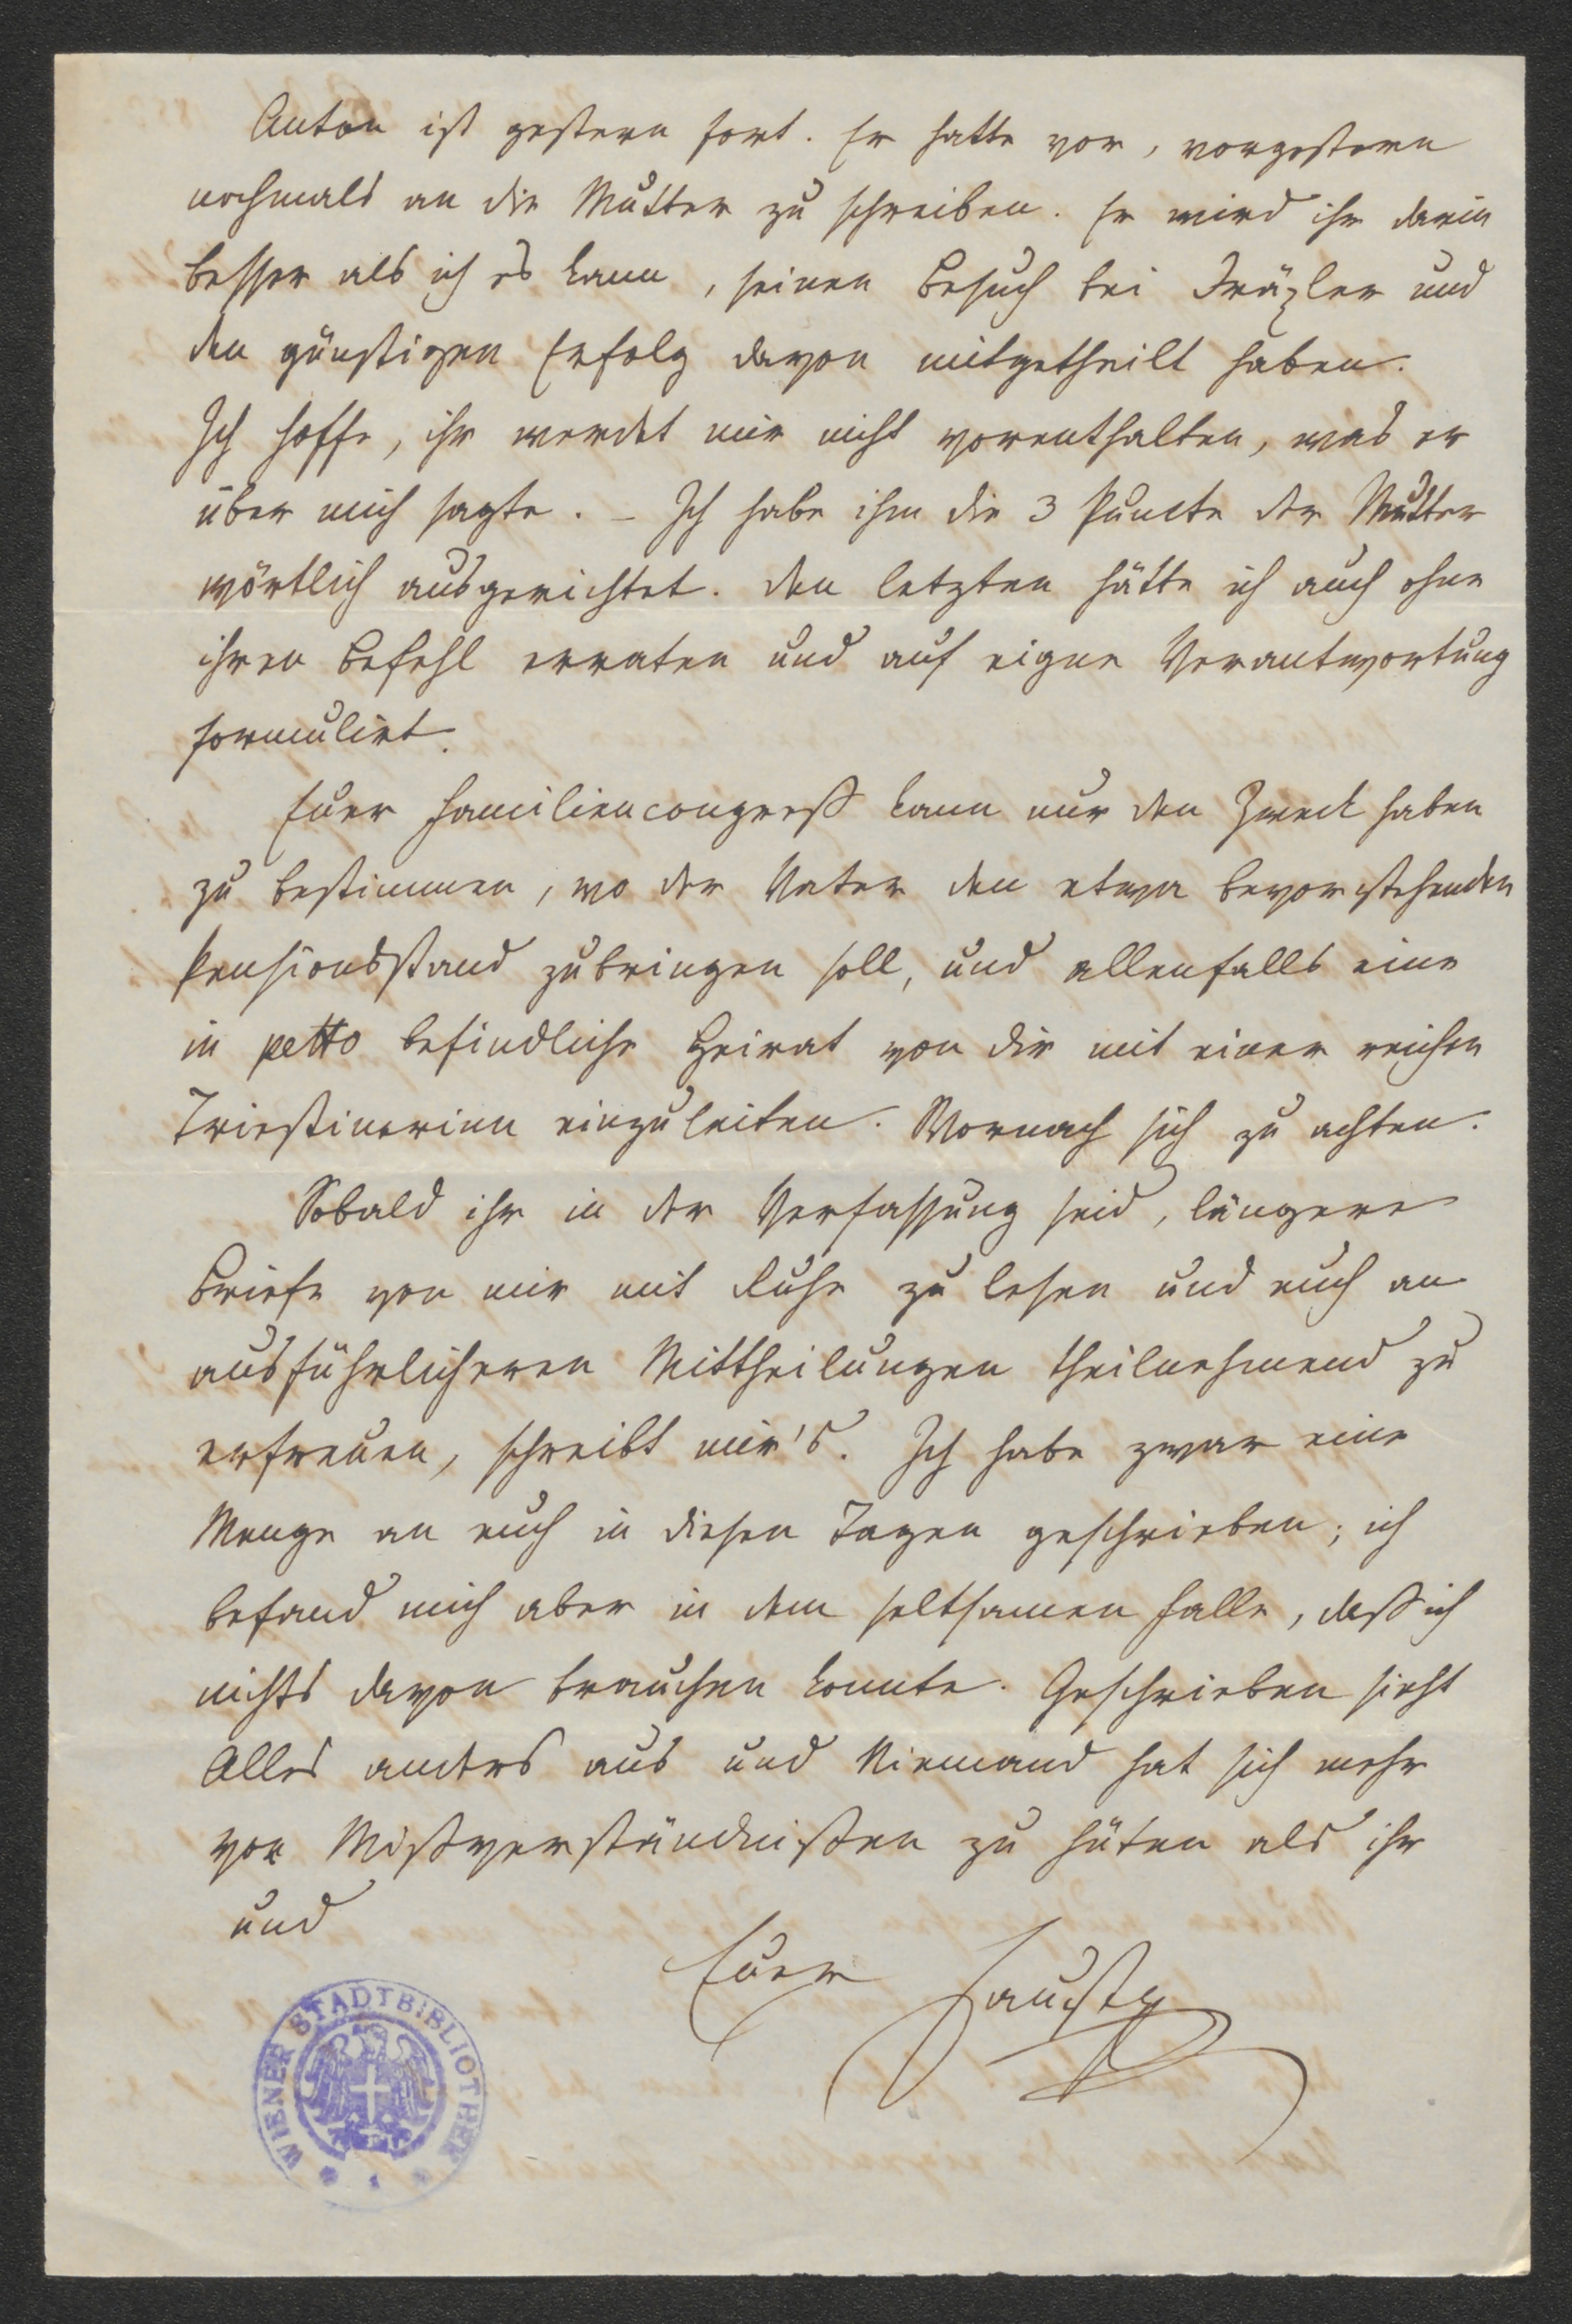 Anton ist gestern fort. Er hatte vor, vorgestern
nochmals an die Mutter zu schreiben. Er wird ihr darin
besser als ich es kann, seinen Besuch bei Dräxler und
den günstigen Erfolg davon mitgetheilt haben.
Ich hoffe, ihr werdet mir nicht vorenthalten, was er
über mich sagte. – Ich habe ihm die 3 Puncte der Mutter
wörtlich ausgerichtet. Den letzten hätte ich auch ohne
ihren Befehl erraten und auf eigne Verantwortung
formulirt.
Euer Familiencongreß kann nur den Zweck haben
zu bestimmen, wo der Vater den etwa bevorstehenden
Pensionsstand zubringen soll, und allenfalls eine
in petto befindliche Heirat von dir mit einer reichen
Triestinerinn einzuleiten. Wornach sich zu achten.
Sobald ihr in der Verfassung seid, längere
Briefe von mir mit Ruhe zu lesen und euch an
ausführlicheren Mittheilungen theilnehmend zu
erfreuen, schreibt mir's. Ich habe zwar eine
Menge an euch in diesen Tagen geschrieben; ich
befand mich aber in dem seltsamen Falle, daß ich
nichts davon brauchen konnte. Geschrieben sieht
Alles anders aus und Niemand hat sich mehr
vor Mißverständnißen zu hüten als ihr
und
Euer Faust
WIENER STADTBIBLIOTHEK